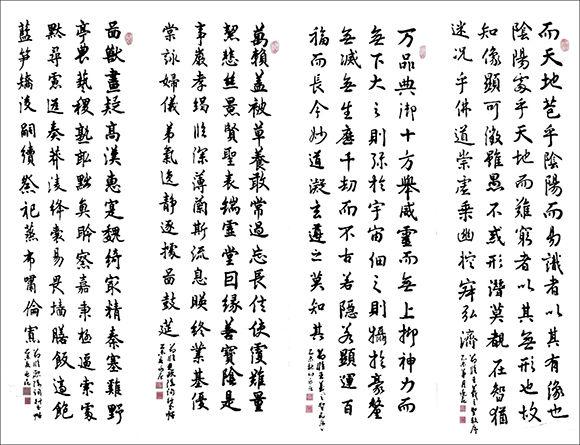 而天地苞乎陰陽而易識者以其有像也
陰陽處乎天地而難窮者以其無形也故
知像顯可徵雖愚不惑形潛莫覩在智猶
迷況乎佛道崇虛乘幽控寂弘濟
万品典御十方舉威靈而無上抑神力而
無下大之則弥於宇宙細之則攝於豪釐
無滅無生歷千劫而不古若隱若顯運百
福而長今妙道凝玄遵之莫知其
萬賴蓋被草養敢常過忘長信使覆難量
絜悲絲景賢聖表端虛堂因緣善寶陰是
事嚴孝竭臨深薄蘭斯流息暎終業基優
棠詠婦儀弟氣逸靜逐據圖鼓
圖獸畫疑高漢惠寔魏綺家精秦塞雞野
亭農藝稷熟黜真聆察嘉秉極逼索處
默尋慮逍奏莽凌絳易畏墻膳飯適飽
藍筍矯凌嗣續祭祀蒸布嘯倫寔